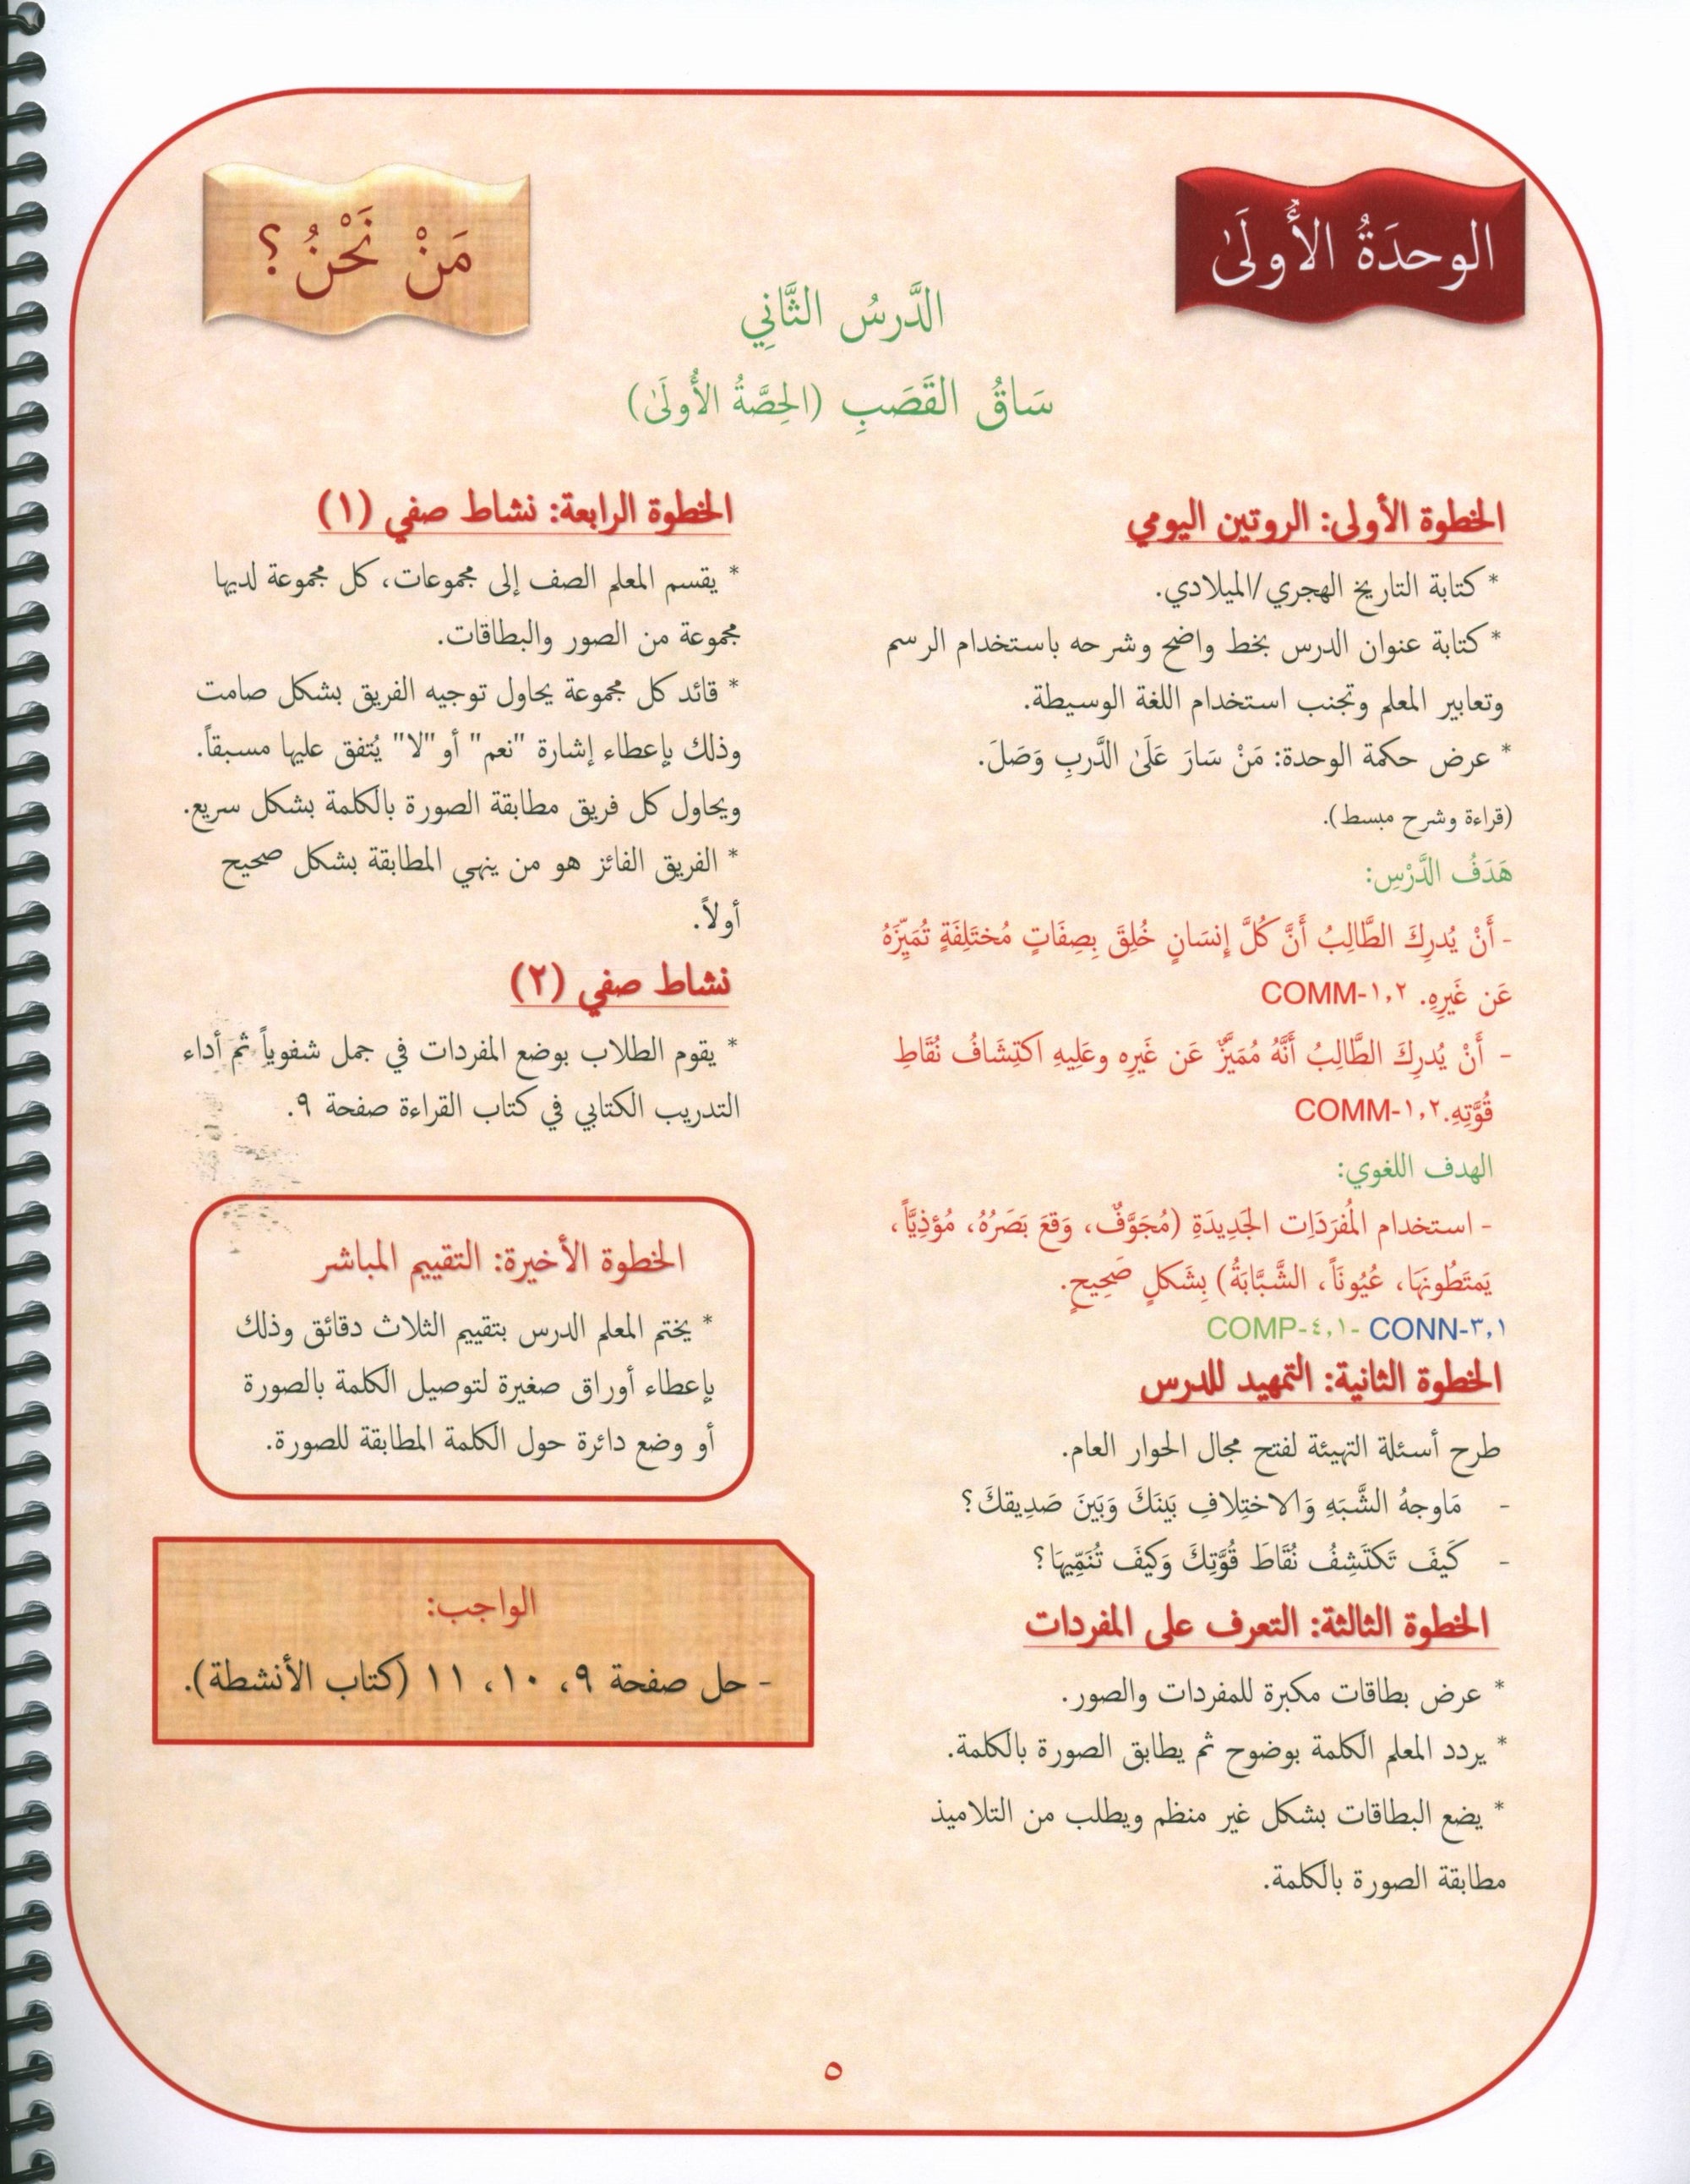 الوحدَةُ الأُولَىٰ
مَنْ نَحْنُ؟
الدَّرسُ الثَّانِي
سَاقُ القَصَبِ (الحِصَّةُ الأُولَىٰ)
الخطوة الأولى: الروتين اليومي
* كتابة التاريخ الهجري/الميلادي.
* كتابة عنوان الدرس بخط واضح وشرحه باستخدام الرسم
وتعابير المعلم وتجنب استخدام اللغة الوسيطة.
* عرض حكمة الوحدة: مَنْ سَارَ عَلَىٰ الدَّربِ وَصَلَ.
(قراءة وشرح مبسط).
هَدَفُ الدَّرْسِ:
- أَنْ يُدرِكَ الطَّالِبُ أَنَّ كُلَّ إِنسَانٍ خُلِقَ بِصِفَاتٍ مُختَلِفَةٍ تُمَيِّزَهُ
عَن غَيرِهِ. COMM-١,٢
- أَنْ يُدرِكَ الطَّالِبُ أَنَّهُ مُمَيَّزٌ عَن غَيرِه وعَلِيهِ اكتِشَافُ نُقَاطِ
قُوَّتِهِ.COMM-١,٢
الهدف اللغوي:
- استخدام المُفرَدَاِت الجَدِيدَةِ (مُجَوَّفٌ، وَقعَ بَصَرُهُ، مُؤذِيَّاً،
يَمتَطُونَهَا، عُيُونَاً، الشَّبَّابَةُ) بِشَكلٍ صَحِيحٍ.
COMP-٤,١- CONN-٣,١
الخطوة الثانية: التمهيد للدرس
طرح أسئلة التهيئة لفتح مجال الحوار العام.
- مَاوجهُ الشَّبَهِ وَالاختِلافِ بَينَكَ وَبَينَ صَدِيقكَ؟
- كَيفَ تَكتَشِفُ نُقَاطَ قُوَّتِكَ وَكَيفَ تُنَمِّيهَا؟
الخطوة الثالثة: التعرف على المفردات
* عرض بطاقات مكبرة للمفردات والصور.
* يردد المعلم الكلمة بوضوح ثم يطابق الصورة بالكلمة.
* يضع البطاقات بشكل غير منظم ويطلب من التلاميذ
مطابقة الصورة بالكلمة.
الخطوة الرابعة: نشاط صفي (١)
* يقسم المعلم الصف إلى مجموعات، كل مجموعة لديها
مجموعة من الصور والبطاقات.
* قائد كل مجموعة يحاول توجيه الفريق بشكل صامت
وذلك بإعطاء إشارة "نعم" أو"لا" يُتفق عليها مسبقاً.
ويحاول كل فريق مطابقة الصورة بالكلمة بشكل سريع.
* الفريق الفائز هو من ينهي المطابقة بشكل صحيح
أولاً.
نشاط صفي (٢)
* يقوم الطلاب بوضع المفردات في جمل شفوياً ثم أداء
التدريب الكتابي في كتاب القراءة صفحة ٩.
الخطوة الأخيرة: التقييم المباشر
* يختم المعلم الدرس بتقييم الثلاث دقائق وذلك
بإعطاء أوراق صغيرة لتوصيل الكلمة بالصورة
أو وضع دائرة حول الكلمة المطابقة للصورة.
الواجب:
- حل صفحة ٩، ١٠، ١١ (كتاب الأنشطة).
٥